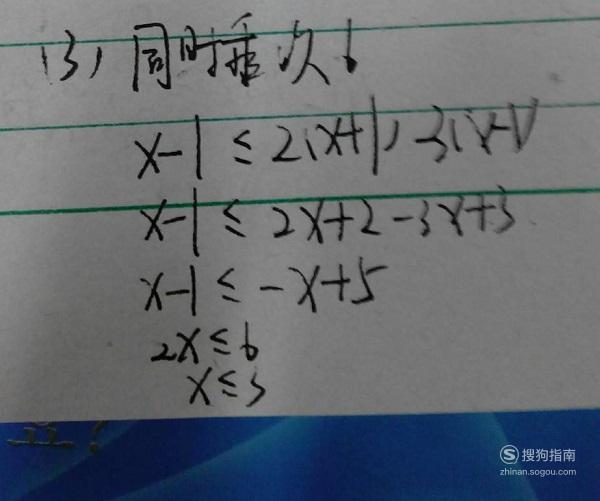 (3) 同时乘次6
x-1 ≤ 2(x+1)-3(x-1)
x-1 ≤ 2x+2-3x+3
x-1 ≤ -x+5
2x ≤ 6
x ≤ 3
搜狗指南
zhinan.sogou.com